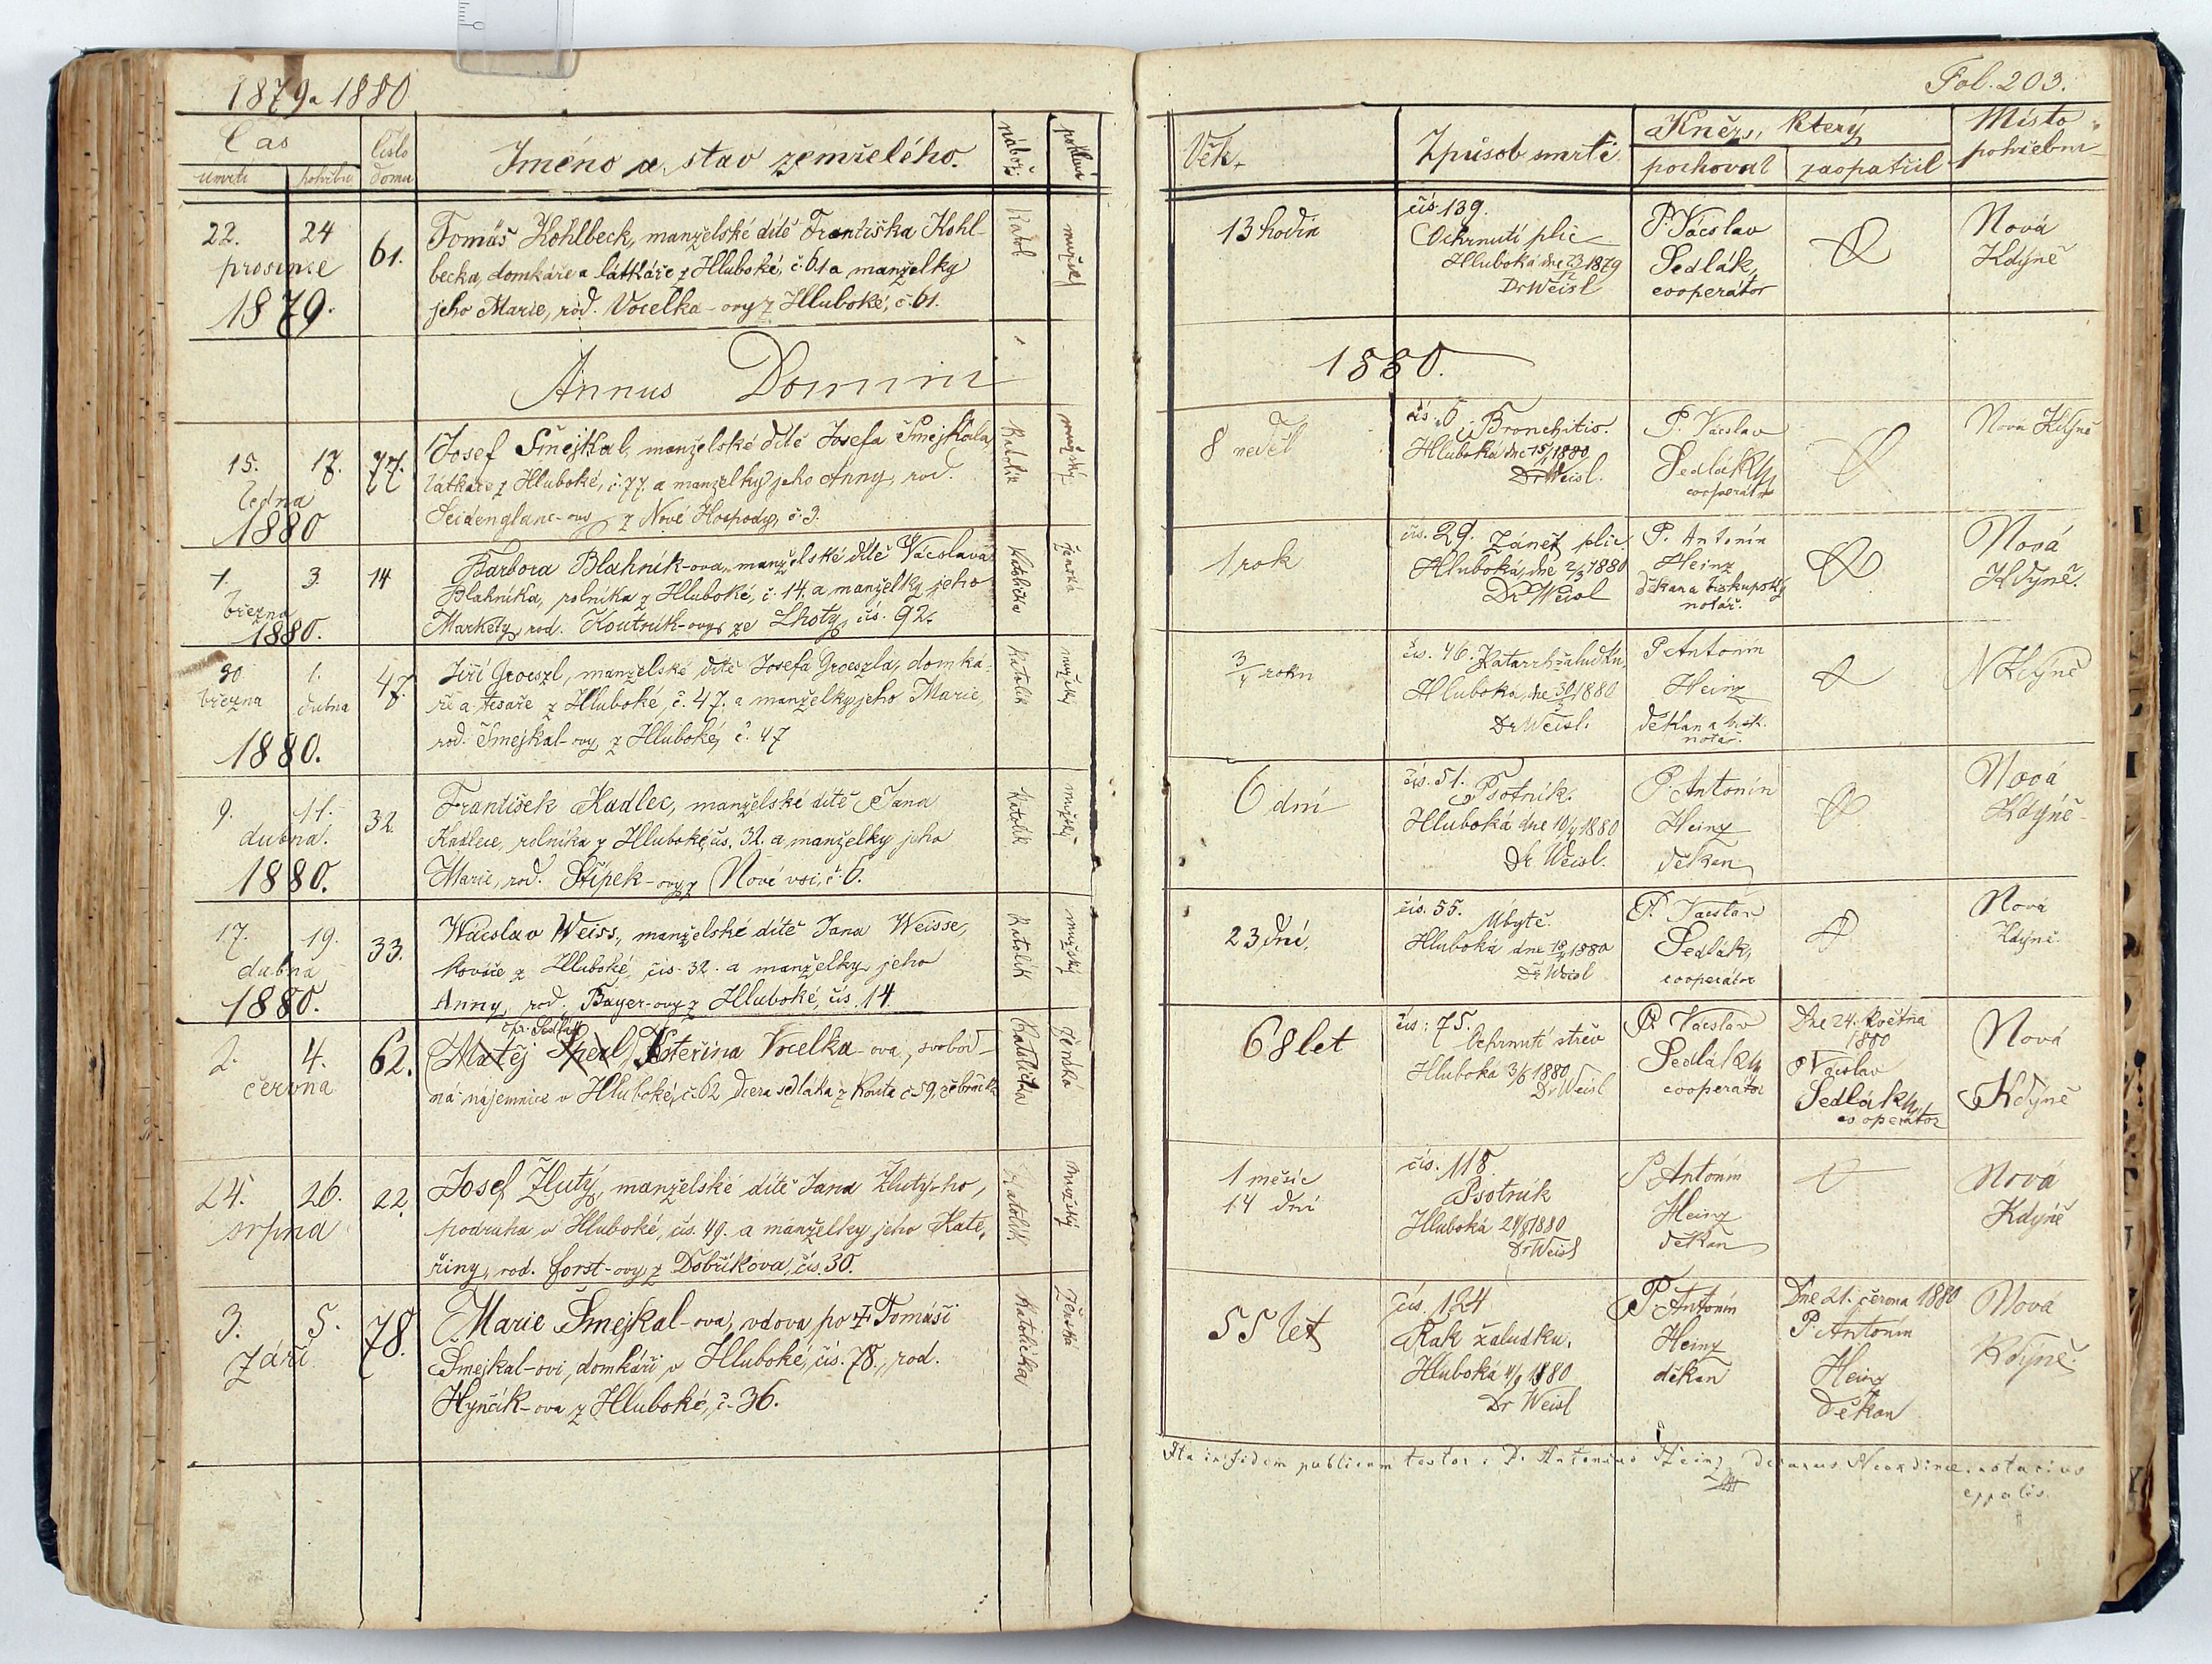 1879 a 1880
Čas
úmrtí
pohřbu
Číslo
domu
Jméno a stav zemřelého.
nábož.
pohlaví
22. 24
prosince
1879.
61.
Tomáš Kohlbeck, manželské dítě Františka Kohl-
becka, domkáře a látkáře z Hluboké, č. 61 a manželky
jeho Marie, rod. Vocelka-ovy z Hluboké, č. 61.
Katol.
mužský
Annus Domini
15. 17.
ledna
1880
77.
Josef Šmejkal, manželské dítě Josefa Šmejkala,
látkáře z Hluboké, č. 77. a manželky jeho Anny, rod.
Seidenglanc-ovy z Nové Hospody, č. 3.
Katolík
mužský
1. 3.
března
1880.
14
Barbora Blahník-ova, manželské dítě Vácslava
Blahníka, rolníka z Hluboké, č. 14. a manželky jeho
Markéty, rod. Koutník-ovy ze Lhoty, čís. 92.
Katolička
ženská
30 1.
března dubna
1880.
47.
Jiří Groeszl, manželské dítě Josefa Groeszla, domká-
ře a tesaře z Hluboké, č. 47. a manželky jeho Marie,
rod. Šmejkal-ovy z Hluboké, č. 47
Katolík
mužský
9. 11.
dubna.
1880.
32.
František Kadlec, manželské dítě Jana
Kadlece, rolníka z Hluboké, čís. 32. a manželky jeho
Marie, rod. Štípek-ovy z Nové vsi, č. 6.
Katolík
mužský
17. 19.
dubna
1880.
33.
Wácslav Weiss, manželské dítě Jana Weisse,
kováře z Hluboké, čís. 32. a manželky jeho
Anny, rod. Bayer-ovy z Hluboké, čís. 14.
Katolík
mužský
2. 4.
června
62.
Matěj Kateřina Vocelka-ova, svobod-
ná nájemnice v Hluboké, č. 62 dcera sedláka z Kouta č. 59,
Katolička
ženská
24. 26.
srpna
22.
Josef Žlutý, manželské dítě Jana Žlutý-ho,
podruha v Hluboké, čís. 49. a manželky jeho Kate-
řiny, rod. Forst-ovy z Dobříkova, čís. 30.
Katolík
mužský
3. 5.
září
78.
Marie Šmejkal-ova, vdova po † Tomáši
Šmejkal-ovi, domkáři v Hluboké, čís. 78., rod.
Hynčík-ova z Hluboké, č. 36.
Katolička
ženská
Fol. 203.
Věk.
Způsob smrti
Kněz, který
pochoval
zaopatřil
Místo
pohřební
13 hodin
čís. 139.
Ochrnutí plic
Hluboká dne 23/12 1879
Dr Weisl
P. Vácslav
Sedlák,
cooperátor
Nová
Kdýně
1880.
8 neděl
čís. 6. Bronchitis.
Hluboká dne 15/1 1880
Dr Weisl.
P. Vácslav
Sedlák
cooperátor
Nová Kdýně
1 rok
čís. 29. Zánět plic.
Hluboká, dne 2/3 1880
Dr Weisl
P. Antonín
Heinz
děkan a biskupský
notář.
Nová
Kdýně.
3/4 roku
čís. 46. Katarrh žaludku,
Hluboká, dne 30/3 1880
Dr Weisl.
P Antonín
Heinz
děkan a bisk.
notář.
N Kdýně
6 dní
čís. 51. Psotník.
Hluboká dne 10/4 1880
Dr Weisl.
P. Antonín
Heinz
děkan
Nová
Kdýně
23 dní.
čís. 55. Úbytě.
Hluboká dne 18/4 1880
Dr Weisl
P. Vácslav
Sedlák,
cooperátor
Nová
Kdýně.
68 let
čís: 75.
Ochrnutí střev
Hluboká 3/6 1880
Dr Weisl
P. Vácslav
Sedlák
cooperátor
Dne 24. května
1880
P Vácslav
Sedlák
cooperátor
Nová
Kdýně
1 měsíc
14 dní
čís. 118.
Psotník
Hluboká 24/8 1880
Dr Weisl
P Antonín
Heinz
děkan
Nová
Kdýně
55 let
čís. 124
Rak žaludku.
Hluboká 4/9 1880
Dr Weisl
P Antonín
Heinz
děkan
Dne 21. června 1880
P. Antonín
Heinz
děkan
Nová
Kdýně.
Ita in fidem publicam testor: P. Antonius Heinz, decanus Neogdinae. notarius
eppalis.